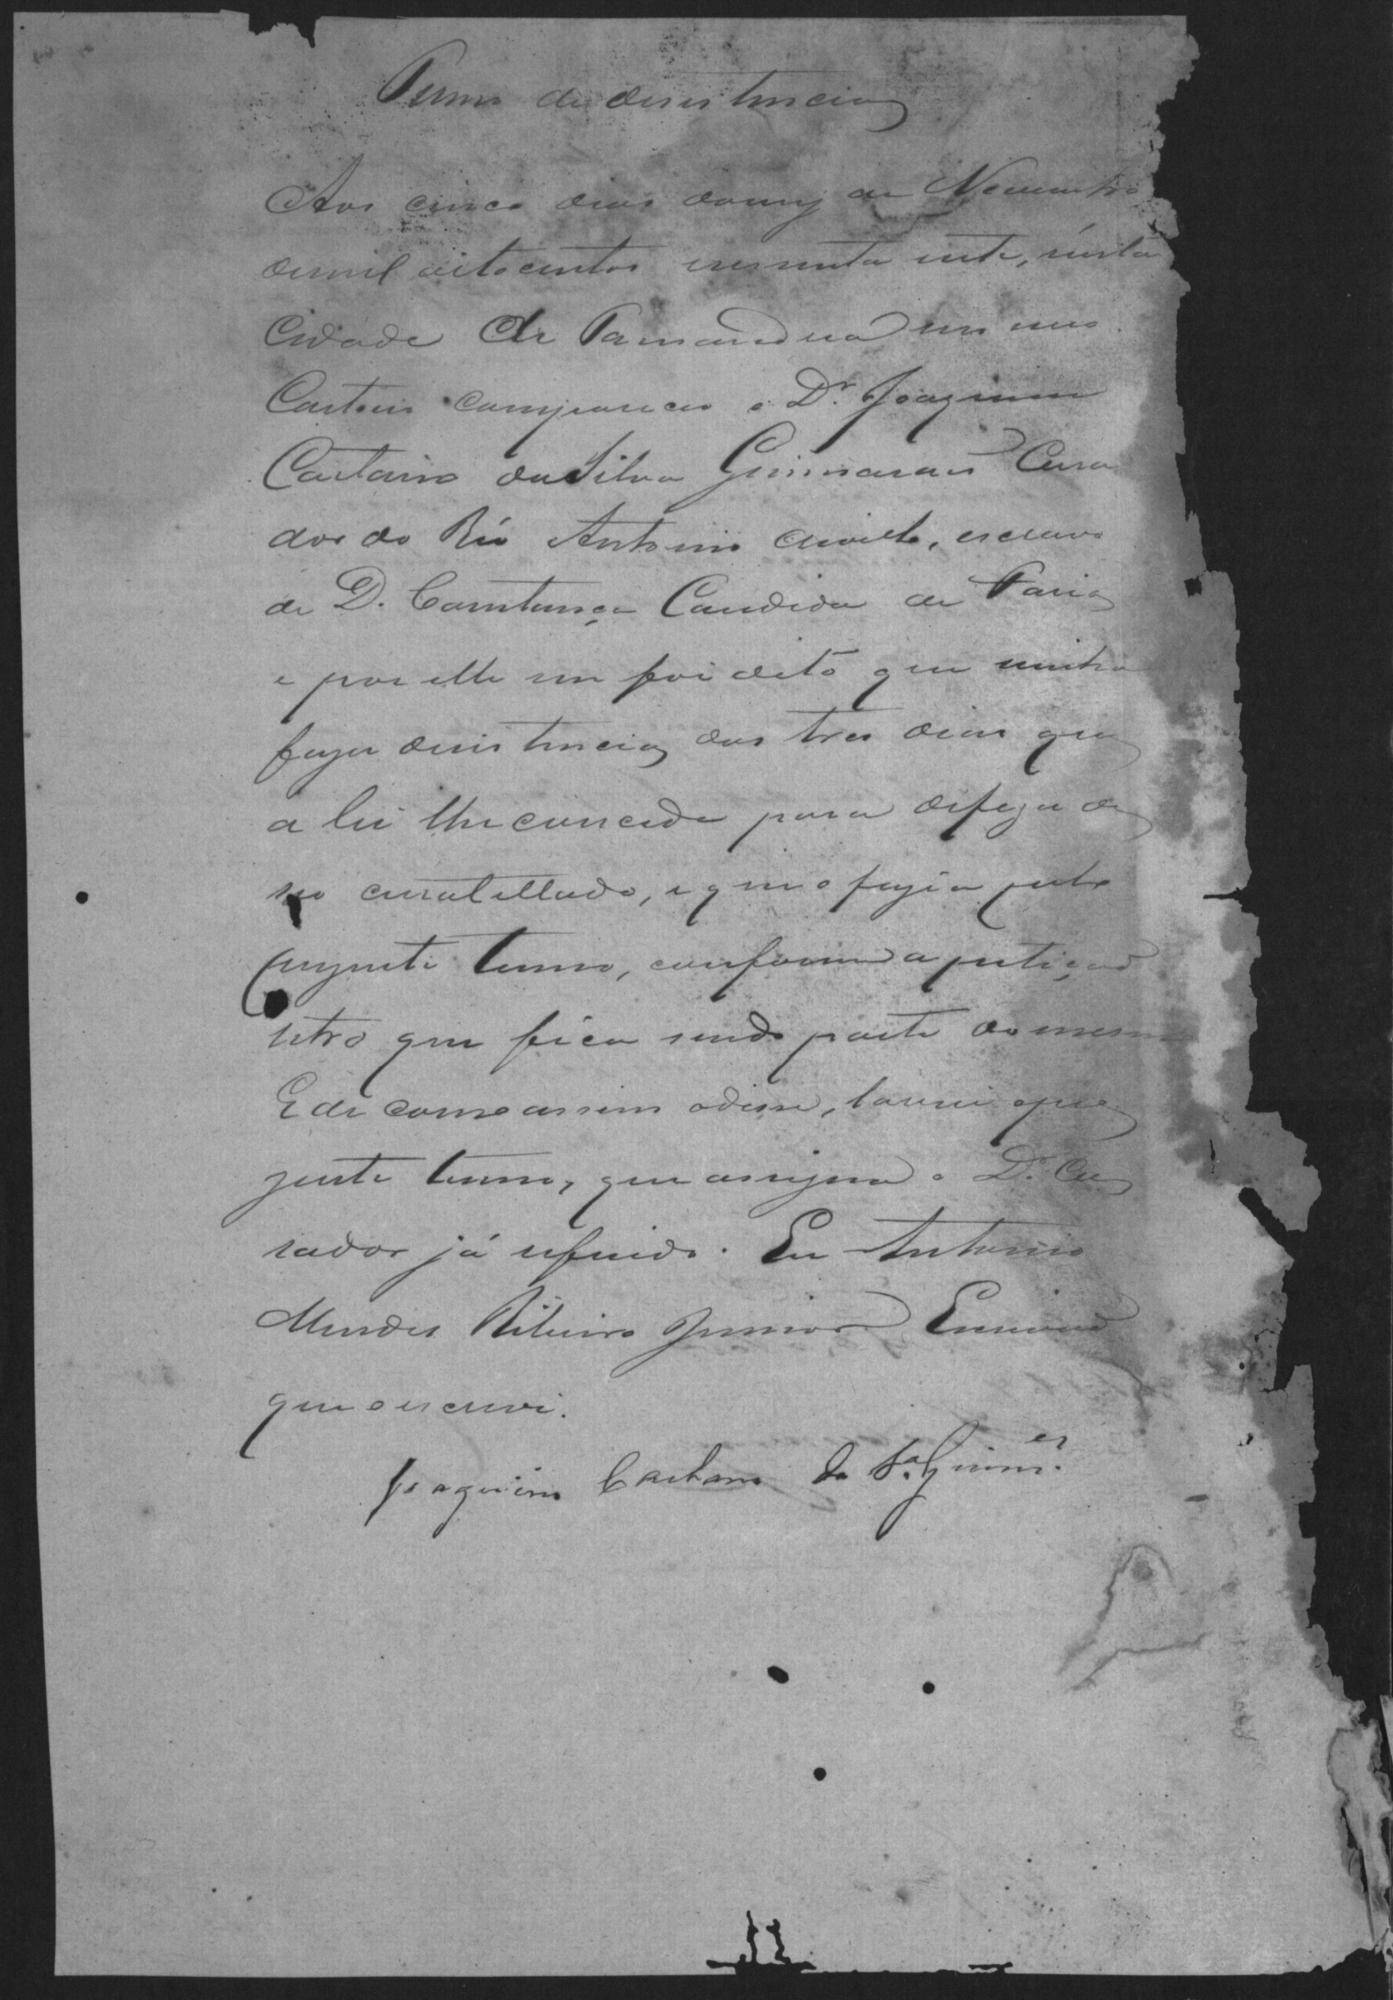 Termo de desistencia
Aos cinco dias do mez de Novembro
de mil oitocentos secenta e sete, n'esta
Cidade de Tamanduá em meu
Cartorio compareceo o Dr. Joaquim
Caetano da Silva Guimaraes Cura
dor do Réo Antonio crioulo, escravo
de D. Constança Candida de Faria
e por elle me foi dito que
fazer desistencia dos tres dias que
a lei lhe concede para defeza de
seo curatellado, e que o fazia pelo
prezente termo, conforme a petição
retro que fica sendo parte do mesmo
E de como assim o disse, lavrei o pre
zente termo, que assigna o Dr. Cu
rador já referido. Eu Antonio
Mendes Ribeiro Junior Escrivão
que o escrevi.
Joaquim Caetano da Sa. Guimes.